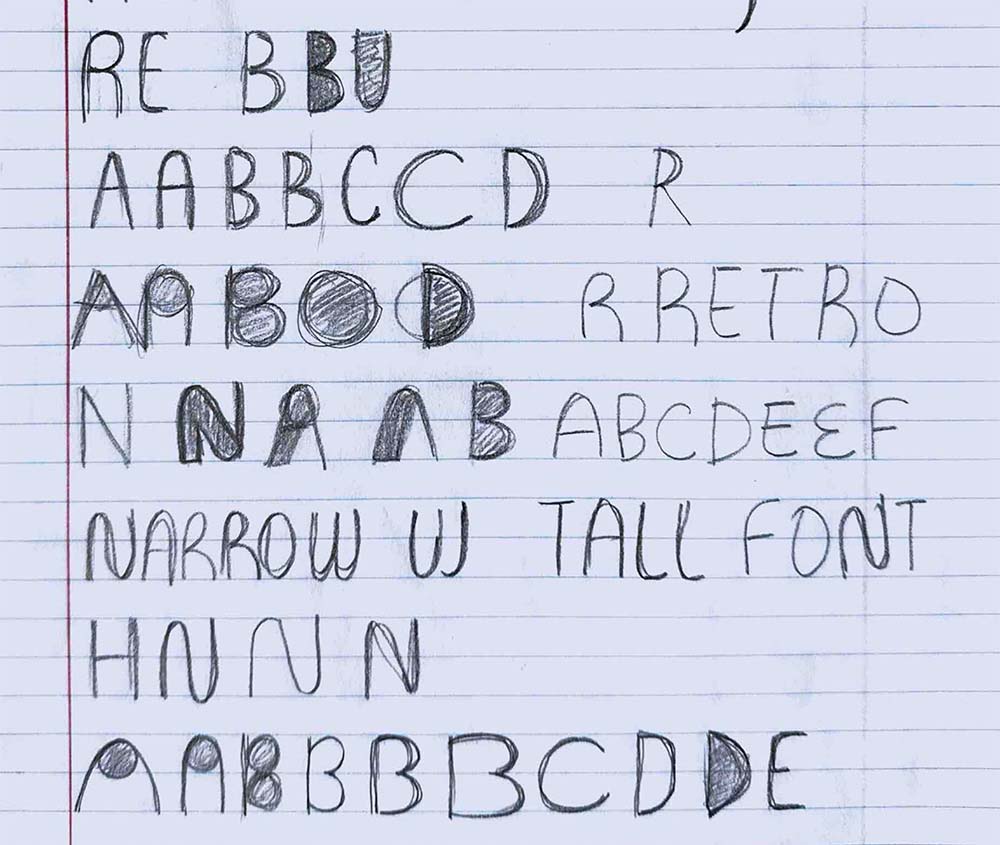 RE B BU
AABBCCD R
AABOD R RETRO
N NA AB ABCDEEF
NARROW W TALL FONT
HNN N
AABBBBCDDE